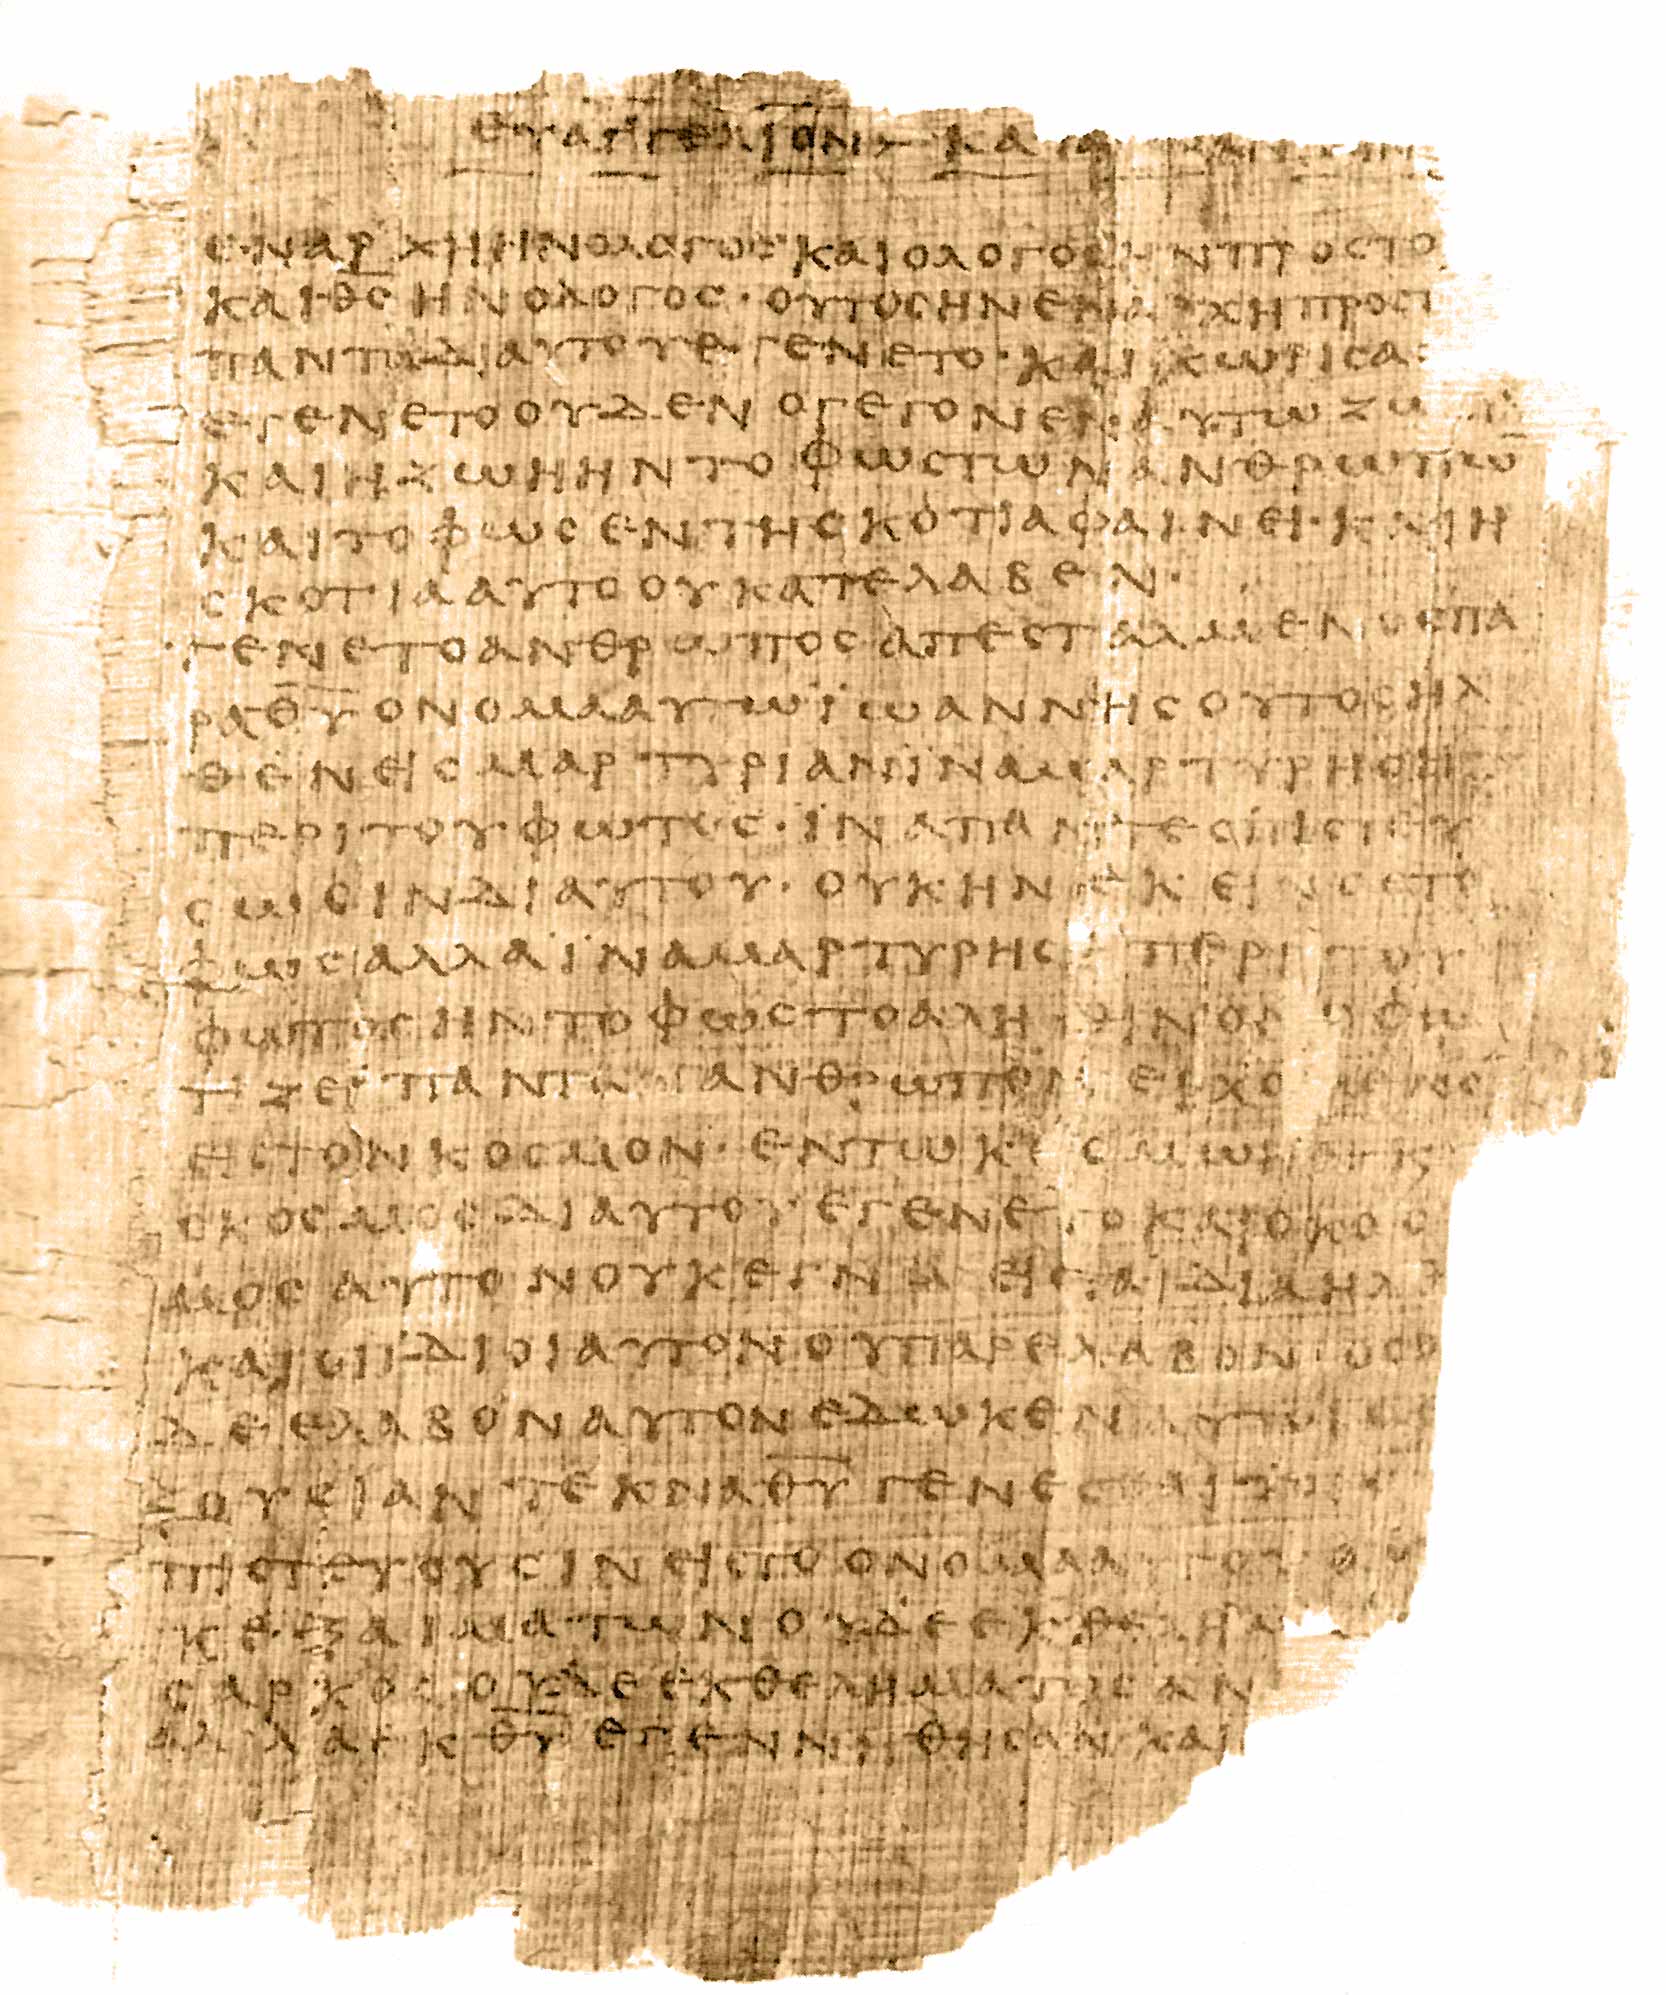 ευαγγελιον κατα
εν αρχη ην ο λογος · και ο λογος ην προς το
και θς ην ο λογος · ουτος ην εν αρχη προς τ
παντα δι αυτου εγενετο · και χωρις α
εγενετο ουδεν ο γεγονεν · εν αυτω ζω
και η ζωη ην το φως των ανθρωπω̅
και το φως εν τη σκοτια φαινει · και η
σκοτια αυτο ου κατελαβεν ·
γενετο ανθρωπος απεσταλμενος πα
ρα θυ ονομα αυτω ϊωαννης ουτος ηλ
θεν εις μαρτυριαν ϊνα μαρτυρηση
περι του φωτος · ϊνα παντες πιστευ
σωσιν δι αυτου · ουκ ην εκεινος το
φως αλλα ϊνα μαρτυρηση περι του
φωτος ην το φως το αληθινον ο φω
τιζει παντα ανθρωπον ερχομενο
εις τον κοσμον · εν τω κοσμω ην και
ο κοσμος δι αυτου εγενετο και ο κοσ
μος αυτον ουκ εγνω εις τα ϊδια ηλθ
και οι ϊδιοι αυτον ου παρελαβον · οσο
δε ελαβον αυτον εδωκεν αυτοις εξ
ουσιαν τεκνα θυ γενεσθαι τοις
πιστευουσιν εις το ονομα αυτου ο
κ εξ αιματων ουδε εκ θελημα
σαρκος ουδε εκ θεληματος αν
αλλα εκ θυ εγεννηθησαν και